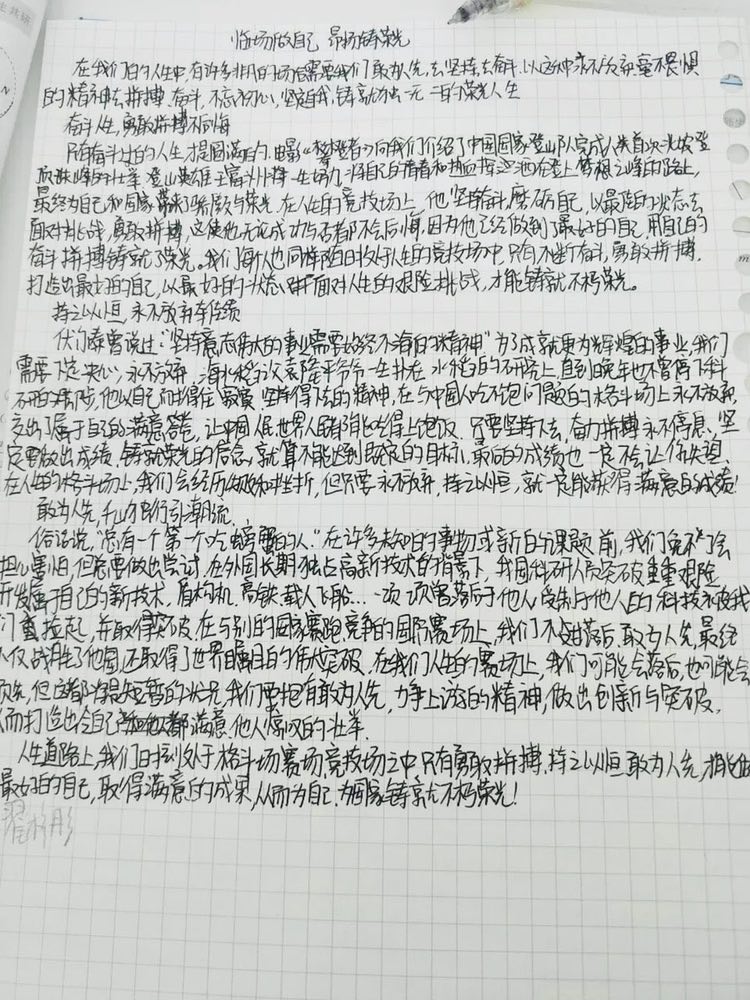 临场做自己 昂扬铸荣光
在我们的人生中,有许多非凡的场合需要我们敢为人先,去坚持去奋斗,以这种永不放弃毫不畏惧
的精神去拼搏,奋斗,不忘初心,坚定自我,铸就独一无二的荣光人生
奋斗人生,勇敢拼搏不后悔
只有奋斗过的人生,才是圆满的.电影《攀登者》向我们介绍了中国国家登山队完成人类首次北坡登
顶珠峰的壮举.登山英雄王富洲将一生努力,将自己的青春和热血挥洒在登上梦想之峰的路上,
最终为自己和国家带来了骄傲与荣光.在人生的竞技场上,他坚持奋斗,磨砺自己,以最强的状态去
面对挑战,勇敢拼搏,这使他无论成功与否都不会后悔,因为他已经做到了最好的自己,用自己的
奋斗拼搏铸就了荣光。我们每个人也同样在人生的竞技场中,只有不断奋斗,勇敢拼搏,
打造出最好的自己,以最好的状态面对人生的艰险挑战,才能铸就不朽荣光。
持之以恒 永不放弃夺佳绩
伏尔泰曾说过:"坚持意志伟大的事业需要始终不渝的精神"为了成就更为辉煌的事业,我们
需要下定决心,永不放弃.海水稻之父袁隆平爷爷一生扑在水稻的研究上,直到晚年也不曾停下科
研的步伐,他以自己耐得住寂寞.坚持得下去的精神,在与中国人吃不饱问题的格斗场上永不放弃,
交出了属于自己的满意答卷,让中国人民,世界人民都能吃得上饱饭.只要坚持下去,奋力拼搏永不停息、坚
定要做出成绩,铸就荣光的信念,就算不能达到既定的目标,最后的成绩也一定不会让你失望.
在人生的格斗场上,我们会经历失败和挫折,但只要永不放弃,持之以恒,就一定能获得满意的成绩!
敢为人先,砥砺前行引潮流.
俗话说,"总有一个第一个吃螃蟹的人."在许多未知的事物或新的课题前,我们免不了会
担心害怕,但总要做出尝试.在外国长期独占高新技术的背景下,我国科研人员突破重重艰险
开发属于自己的新技术.盾构机.高铁.载人飞船...一项项曾落后于他人,受制于他人的科技被我
们重拾起,并取得突破.在与别的国家赛跑竞争的国际赛场上,我们不甘落后,敢为人先,最终
仅战胜了他国,还取得了世界瞩目的伟大突破.在我们人生的赛场上,我们可能会落后,也可能会
领先,但这都为是短暂的状况,我们要抱有敢为人先,力争上游的精神,做出创新与突破,
从而打造出令自己满意,他人惊叹的壮举.
人生道路上,我们时刻处于格斗场赛场竞技场之中,只有勇敢拼搏,持之以恒,敢为人先,才能做
最好的自己,取得满意的成果,从而为自己.为国家铸就不朽荣光!